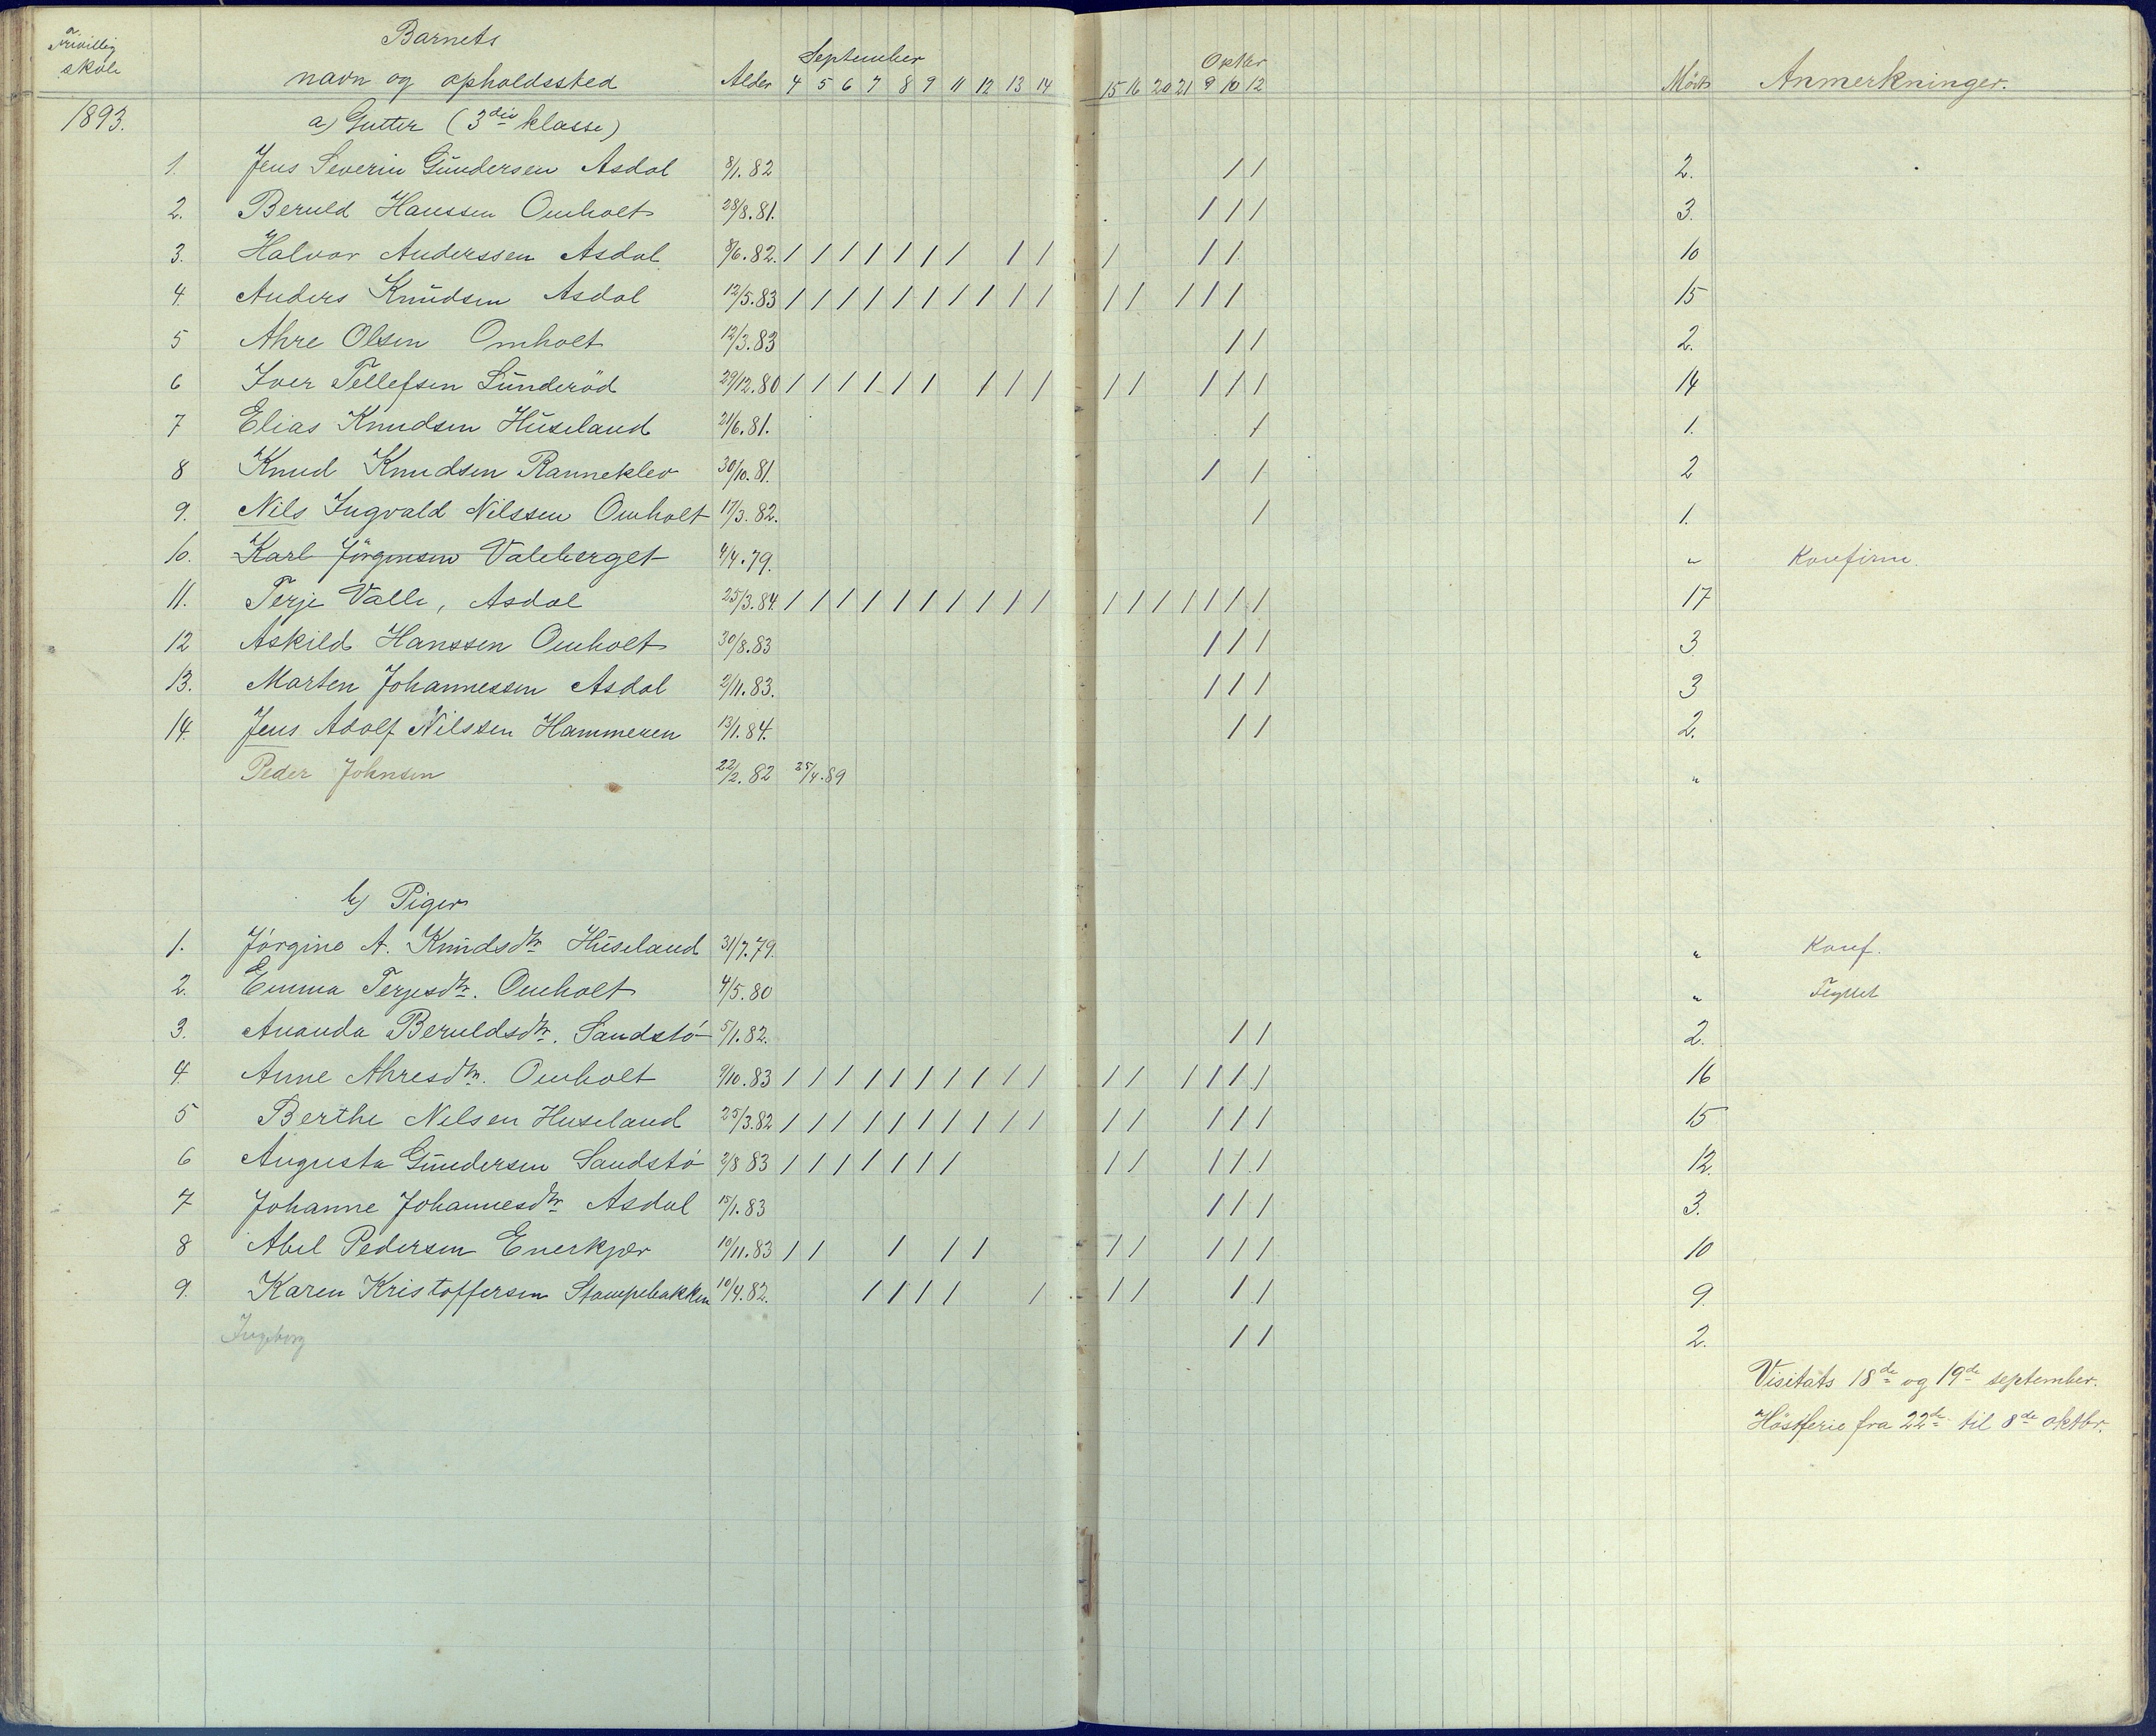 frivillig
skole
Barnets
navn og opholdssted
Alder
September
4 5 6 7 8 9 11 12 13 14
Oktbr
15 16 20 21 9 10 12
Mødt
Anmerkninger.
1893.
a) Gutter (3die klasse)
1. Jens Severin Gundersen Asdal 8/1.82 / / 2.
2. Beruld Hanssen Omholt 28/8.81. / / / 3.
3. Halvor Anderssen Asdal 8/6.82. / / / / / / / / / / / / 10
4. Anders Knudsen Asdal 12/5.83 / / / / / / / / / / / / / / / 15
5 Ahre Olsen Omholt 12/3.83 / / 2.
6 Iver Tellefsen Sunderöd 29/12.80 / / / / / / / / / / / / / / 14
7 Elias Knudsen Huseland 21/6.81. / 1.
8 Knud Knudsen Ranneklev 30/10.81. / / 2
9. Nils Ingvald Nilssen Omholt 17/3.82. / 1.
10. Karl Jörgensen Valeberget 4/4.79. " Konfirm.
11. Terje Valle, Asdal 25/3.84. / / / / / / / / / / / / / / / / / 17
12 Askild Hanssen Omholt 30/8.83 / / / 3
13. Marten Johannessen Asdal 2/11.83. / / / 3
14. Jens Adolf Nilssen Hammeren 13/1.84. / / 2.
Peder Johnsen 22/2.82 25/4.89 "
b) Piger
1. Jörgine A. Knudsdtr Huseland 31/7.79. " Konf.
2. Emma Terjesdtr. Omholt 4/5.80 " Flyttet
3. Ananda Beruldsdtr. Sandstö 5/1.82. / / 2.
4. Anne Ahresdtr. Omholt 9/10.83 / / / / / / / / / / / / / / / / 16
5 Berthe Nilsen Huseland 25/3.82 / / / / / / / / / / / / / / / 15
6 Augusta Gundersen Sandstö 2/8 83 / / / / / / / / / / / / 12.
7 Johanne Johannesdtr Asdal 15/1.83 / / / 3.
8 Abel Pedersen Enerkjær 10/11.83 / / / / / / / / / / 10
9. Karen Kristoffersen Stampebakken 10/4.82. / / / / / / / / / 9.
Ingeborg / / 2.
Visitats 18de og 19de september.
Höstferie fra 22de til 8de oktbr.